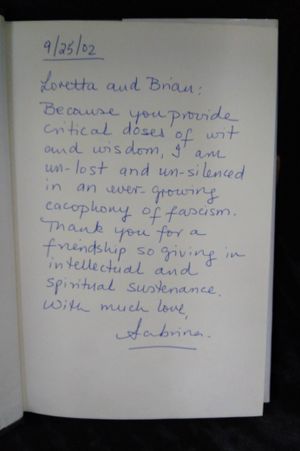 9/25/02
Loretta and Brian:
Because you provide
critical doses of wit
and wisdom, I am
un-lost and un-silenced
in an ever-growing
cacophony of fascism.
Thank you for a
friendship so giving in
intellectual and
spiritual sustenance.
With much love,
Sabrina.